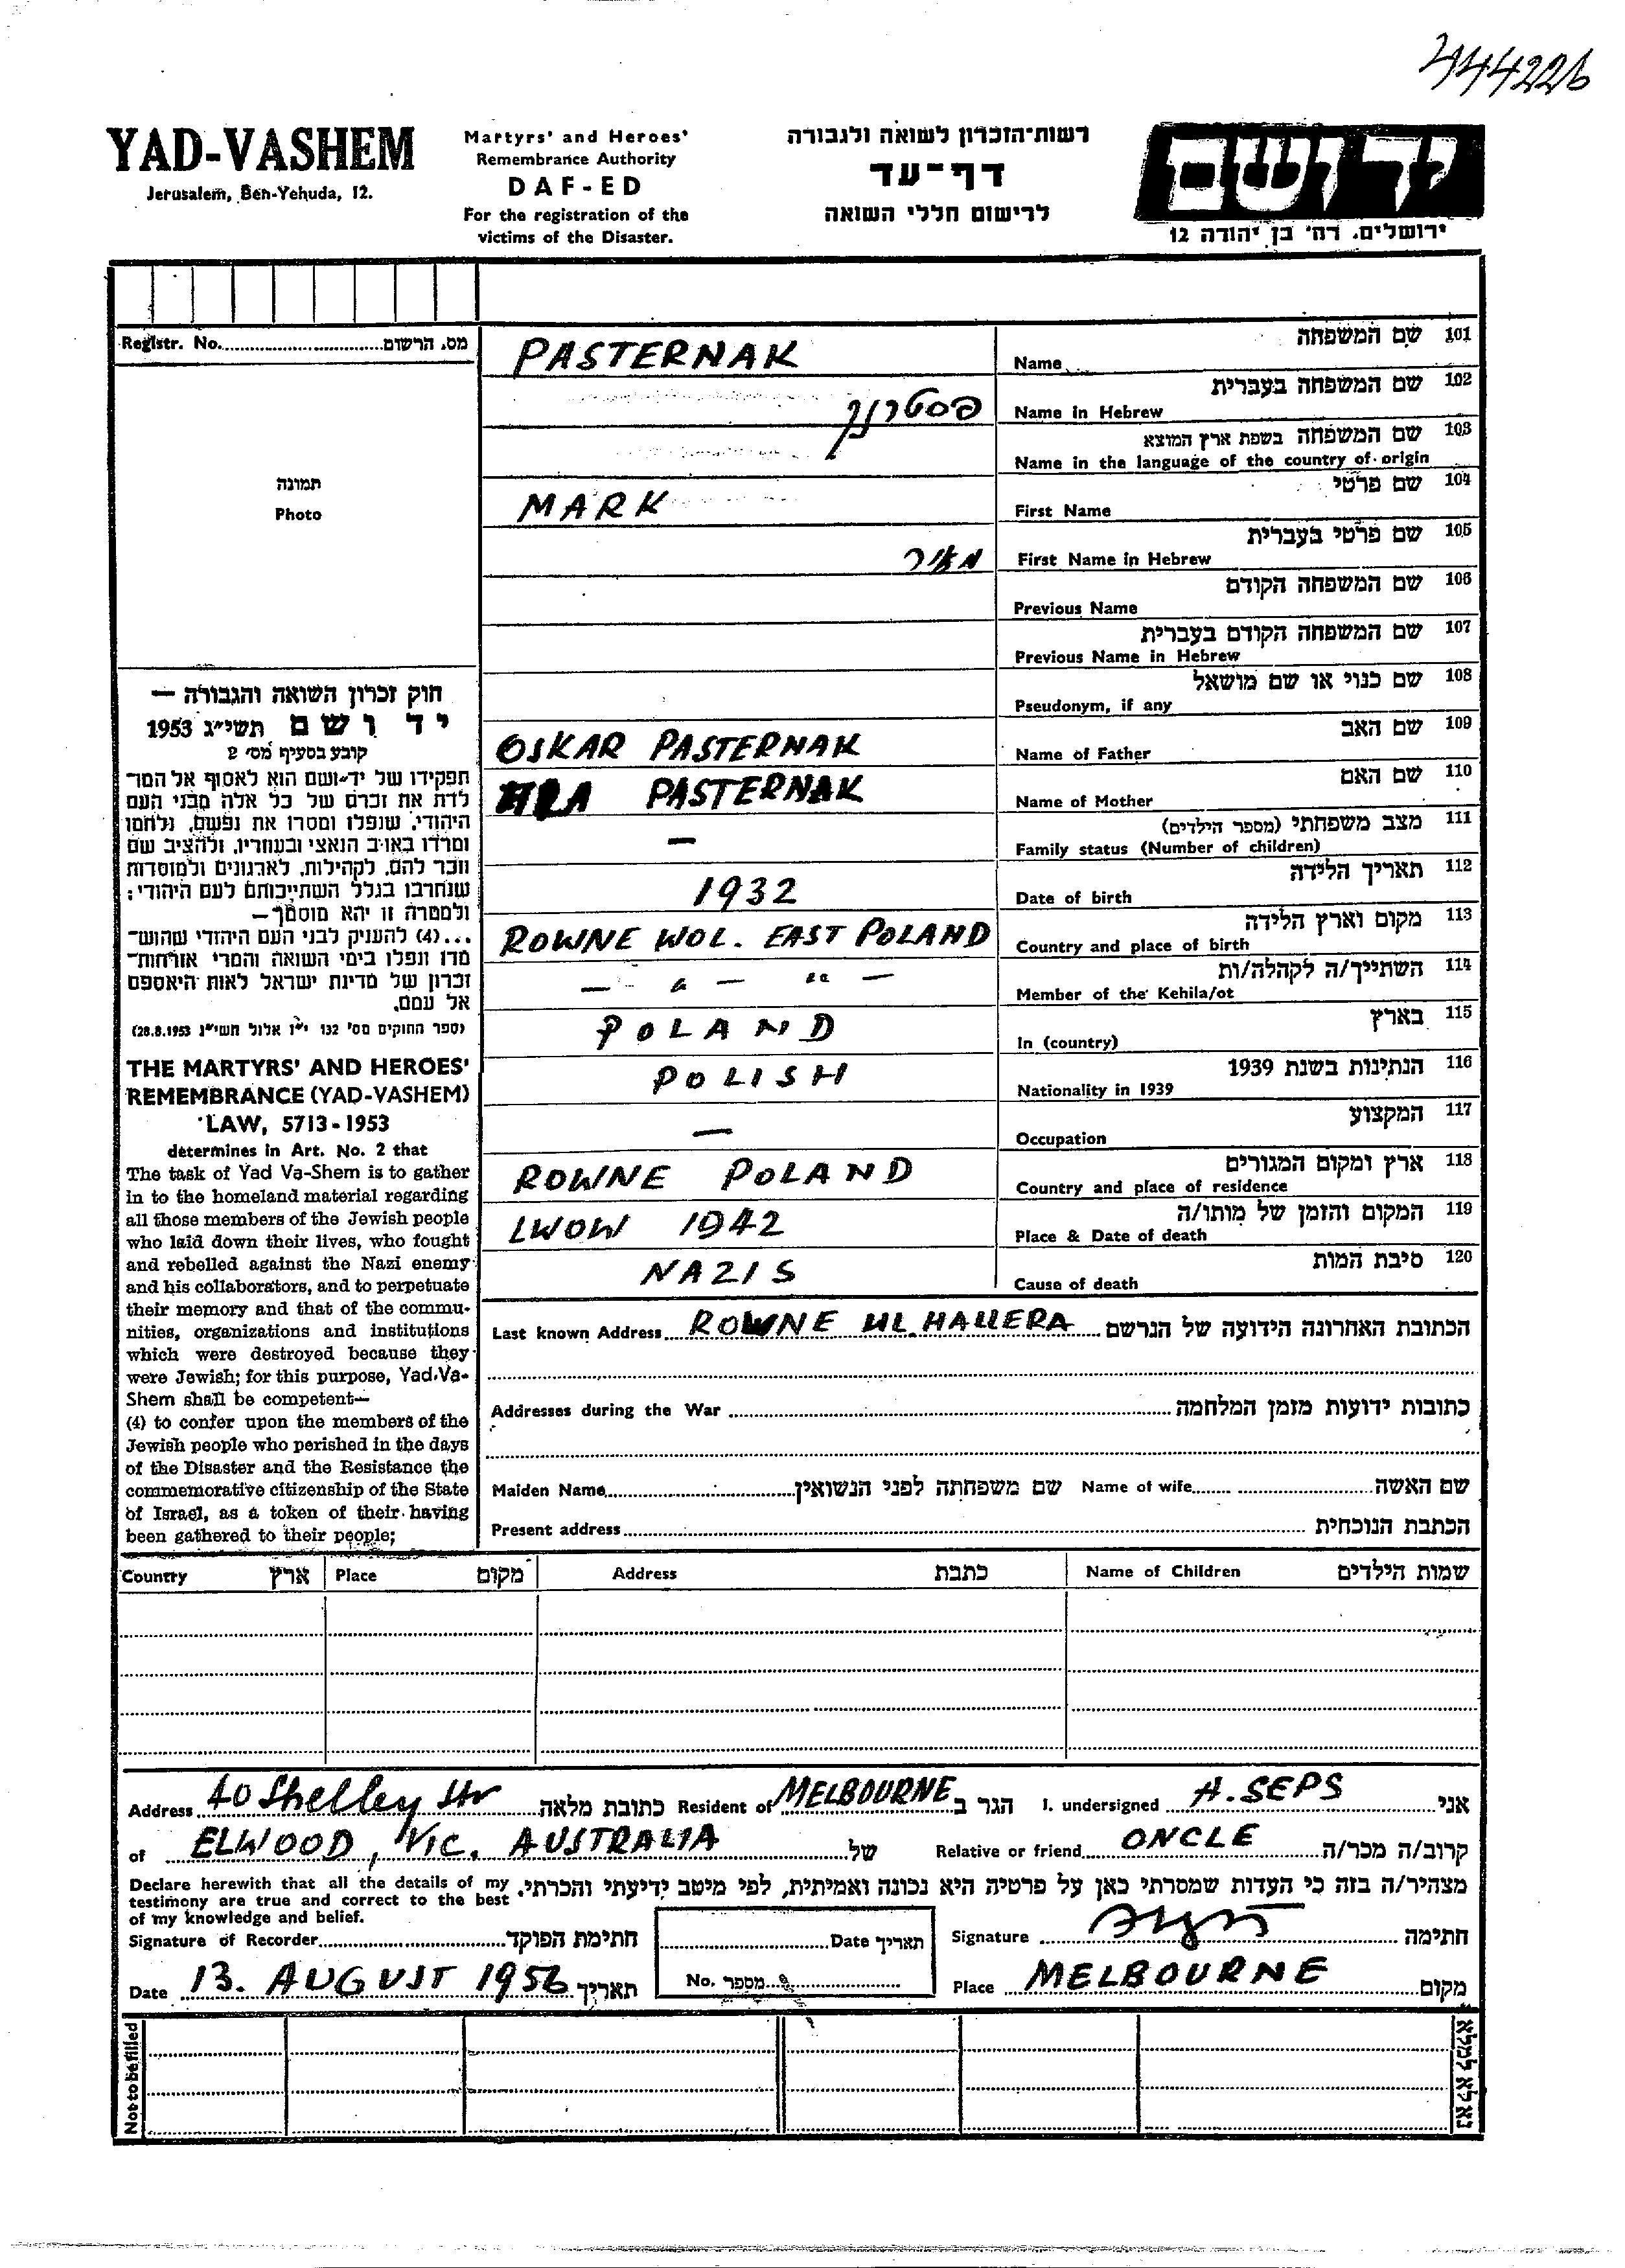 444226
YAD-VASHEM
Jerusalem, Ben-Yehuda, 12.
Martyrs' and Heroes'
Remembrance Authority
DAF-ED
For the registration of the
victims of the Disaster.
רשות־הזכרון לשואה ולגבורה
דף־עד
לרישום חללי השואה
יד ושם
ירושלים. רח' בן יהודה 12
Registr. No. מס. הרשום
תמונה
Photo
חוק זכרון השואה והגבורה —
יד ושם תשי״ג 1953
קובע בסעיף מס׳ 2
תפקידו של יד־ושם הוא לאסוף אל המו־
לדת את זכרם של כל אלה מבני העם
היהודי, שנפלו ומסרו את נפשם, נלחמו
ומרדו באויב הנאצי ובעוזריו, ולהציב שם
וזכר להם, לקהילות, לארגונים ולמוסדות
שנחרבו בגלל השתייכותם לעם היהודי;
ולמטרה זו יהא מוסמך—
...(4) להעניק לבני העם היהודי שהוש־
מדו ונפלו בימי השואה והמרי אזרחות־
זכרון של מדינת ישראל לאות היאספם
אל עמם.
(ספר החוקים מס' 132 י״ז אלול תשי״ג 28.8.1953)
THE MARTYRS' AND HEROES'
REMEMBRANCE (YAD-VASHEM)
LAW, 5713-1953
determines in Art. No. 2 that
The task of Yad Va-Shem is to gather
in to the homeland material regarding
all those members of the Jewish people
who laid down their lives, who fought
and rebelled against the Nazi enemy
and his collaborators, and to perpetuate
their memory and that of the commu-
nities, organizations and institutions
which were destroyed because they
were Jewish; for this purpose, Yad-Va-
Shem shall be competent—
(4) to confer upon the members of the
Jewish people who perished in the days
of the Disaster and the Resistance the
commemorative citizenship of the State
of Israel, as a token of their having
been gathered to their people;
101 שם המשפחה
PASTERNAK Name
102 שם המשפחה בעברית
פסטרנק Name in Hebrew
103 שם המשפחה בשפת ארץ המוצא
Name in the language of the country of origin
104 שם פרטי
MARK First Name
105 שם פרטי בעברית
מאיר First Name in Hebrew
106 שם המשפחה הקודם
Previous Name
107 שם המשפחה הקודם בעברית
Previous Name in Hebrew
108 שם כנוי או שם מושאל
Pseudonym, if any
109 שם האב
OSKAR PASTERNAK Name of Father
110 שם האם
PASTERNAK Name of Mother
111 מצב משפחתי (מספר הילדים)
— Family status (Number of children)
112 תאריך הלידה
1932 Date of birth
113 מקום וארץ הלידה
ROWNE WOL. EAST POLAND Country and place of birth
114 השתייך/ה לקהלה/ות
— " — " — Member of the Kehila/ot
115 בארץ
POLAND In (country)
116 הנתינות בשנת 1939
POLISH Nationality in 1939
117 המקצוע
— Occupation
118 ארץ ומקום המגורים
ROWNE POLAND Country and place of residence
119 המקום והזמן של מותו/ה
LWOW 1942 Place & Date of death
120 סיבת המות
NAZIS Cause of death
Last known Address ROWNE UL. HALLERA הכתובת האחרונה הידועה של הנרשם
Addresses during the War כתובות ידועות מזמן המלחמה
Maiden Name שם משפחתה לפני הנשואין Name of wife שם האשה
Present address הכתבת הנוכחית
Country ארץ Place מקום Address כתבת Name of Children שמות הילדים
Address 40 Shelley Str כתובת מלאה Resident of MELBOURNE הגר ב I. undersigned A. SEPS אני
of ELWOOD, VIC. AUSTRALIA של Relative or friend ONCLE קרוב/ה מכר/ה
Declare herewith that all the details of my
testimony are true and correct to the best
of my knowledge and belief.
מצהיר/ה בזה כי העדות שמסרתי כאן על פרטיה היא נכונה ואמיתית, לפי מיטב ידיעתי והכרתי.
Signature of Recorder חתימת הפוקד Date תאריך Signature חתימה
Date 13. AUGUST 1956 תאריך No. מספר Place MELBOURNE מקום
Not to be filled
נא לא למלא